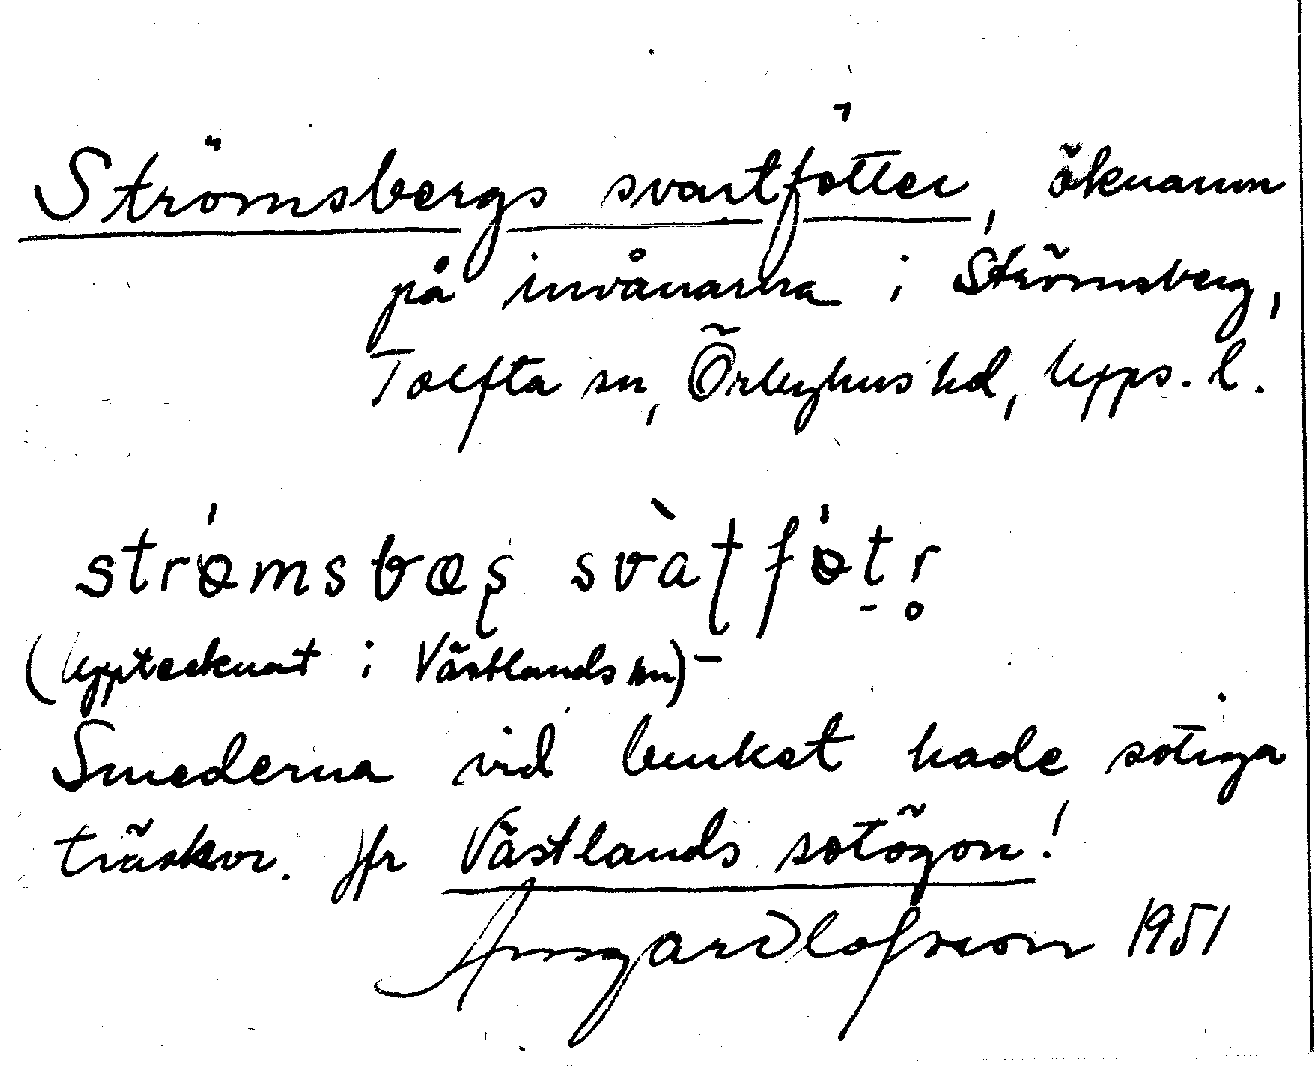 Strömsbergs svartfötter, öknamn
på invånarna i Strömsberg,
Tolfta sn, Örbyhus hd, Upps. l.
strömsbæș svàtfǿtr̥
(Upptecknat i Västlands sn) –
Smederna vid bruket hade sotiga
träskor. Jfr Västlands sotögon!
Ansgar Olofsson 1951